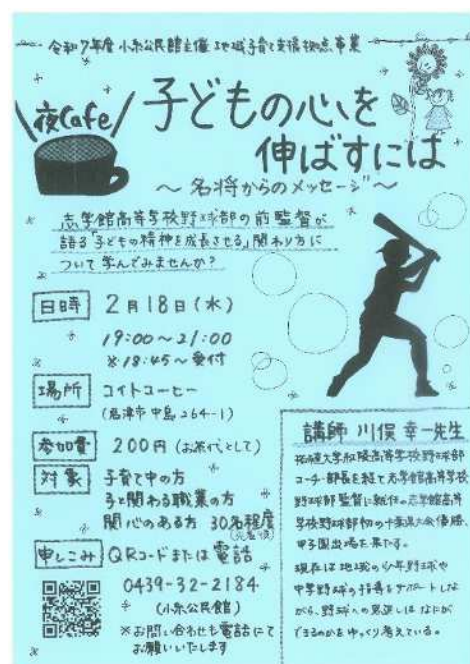 令和7年度 小糸公民館主催 地域子育て支援拠点事業
夜Cafe
子どもの心を
伸ばすには
〜名将からのメッセージ〜
志学館高等学校野球部の前監督が
語る「子どもの精神を成長させる」関わり方に
ついて学んでみませんか？
日時 2月18日(水)
19:00〜21:00
※18:45〜受付
場所 コイトコーヒー
(君津市中島264-1)
参加費 200円 (お茶代として)
対象 子育て中の方
子と関わる職業の方
関心のある方 30名程度
(先着順)
申しこみ QRコードまたは電話
0439-32-2184
(小糸公民館)
※お問い合わせも電話にて
お願いいたします
講師 川俣 幸一先生
拓殖大学紅陵高等学校野球部
コーチ・部長を経て志学館高等学校
野球部監督に就任。志学館高等
学校野球部初の千葉県大会優勝、
甲子園出場を果たす。
現在は地域の少年野球や
中学野球の指導をサポートしな
がら、野球への恩返しはなにが
できるのかをゆっくり考えている。